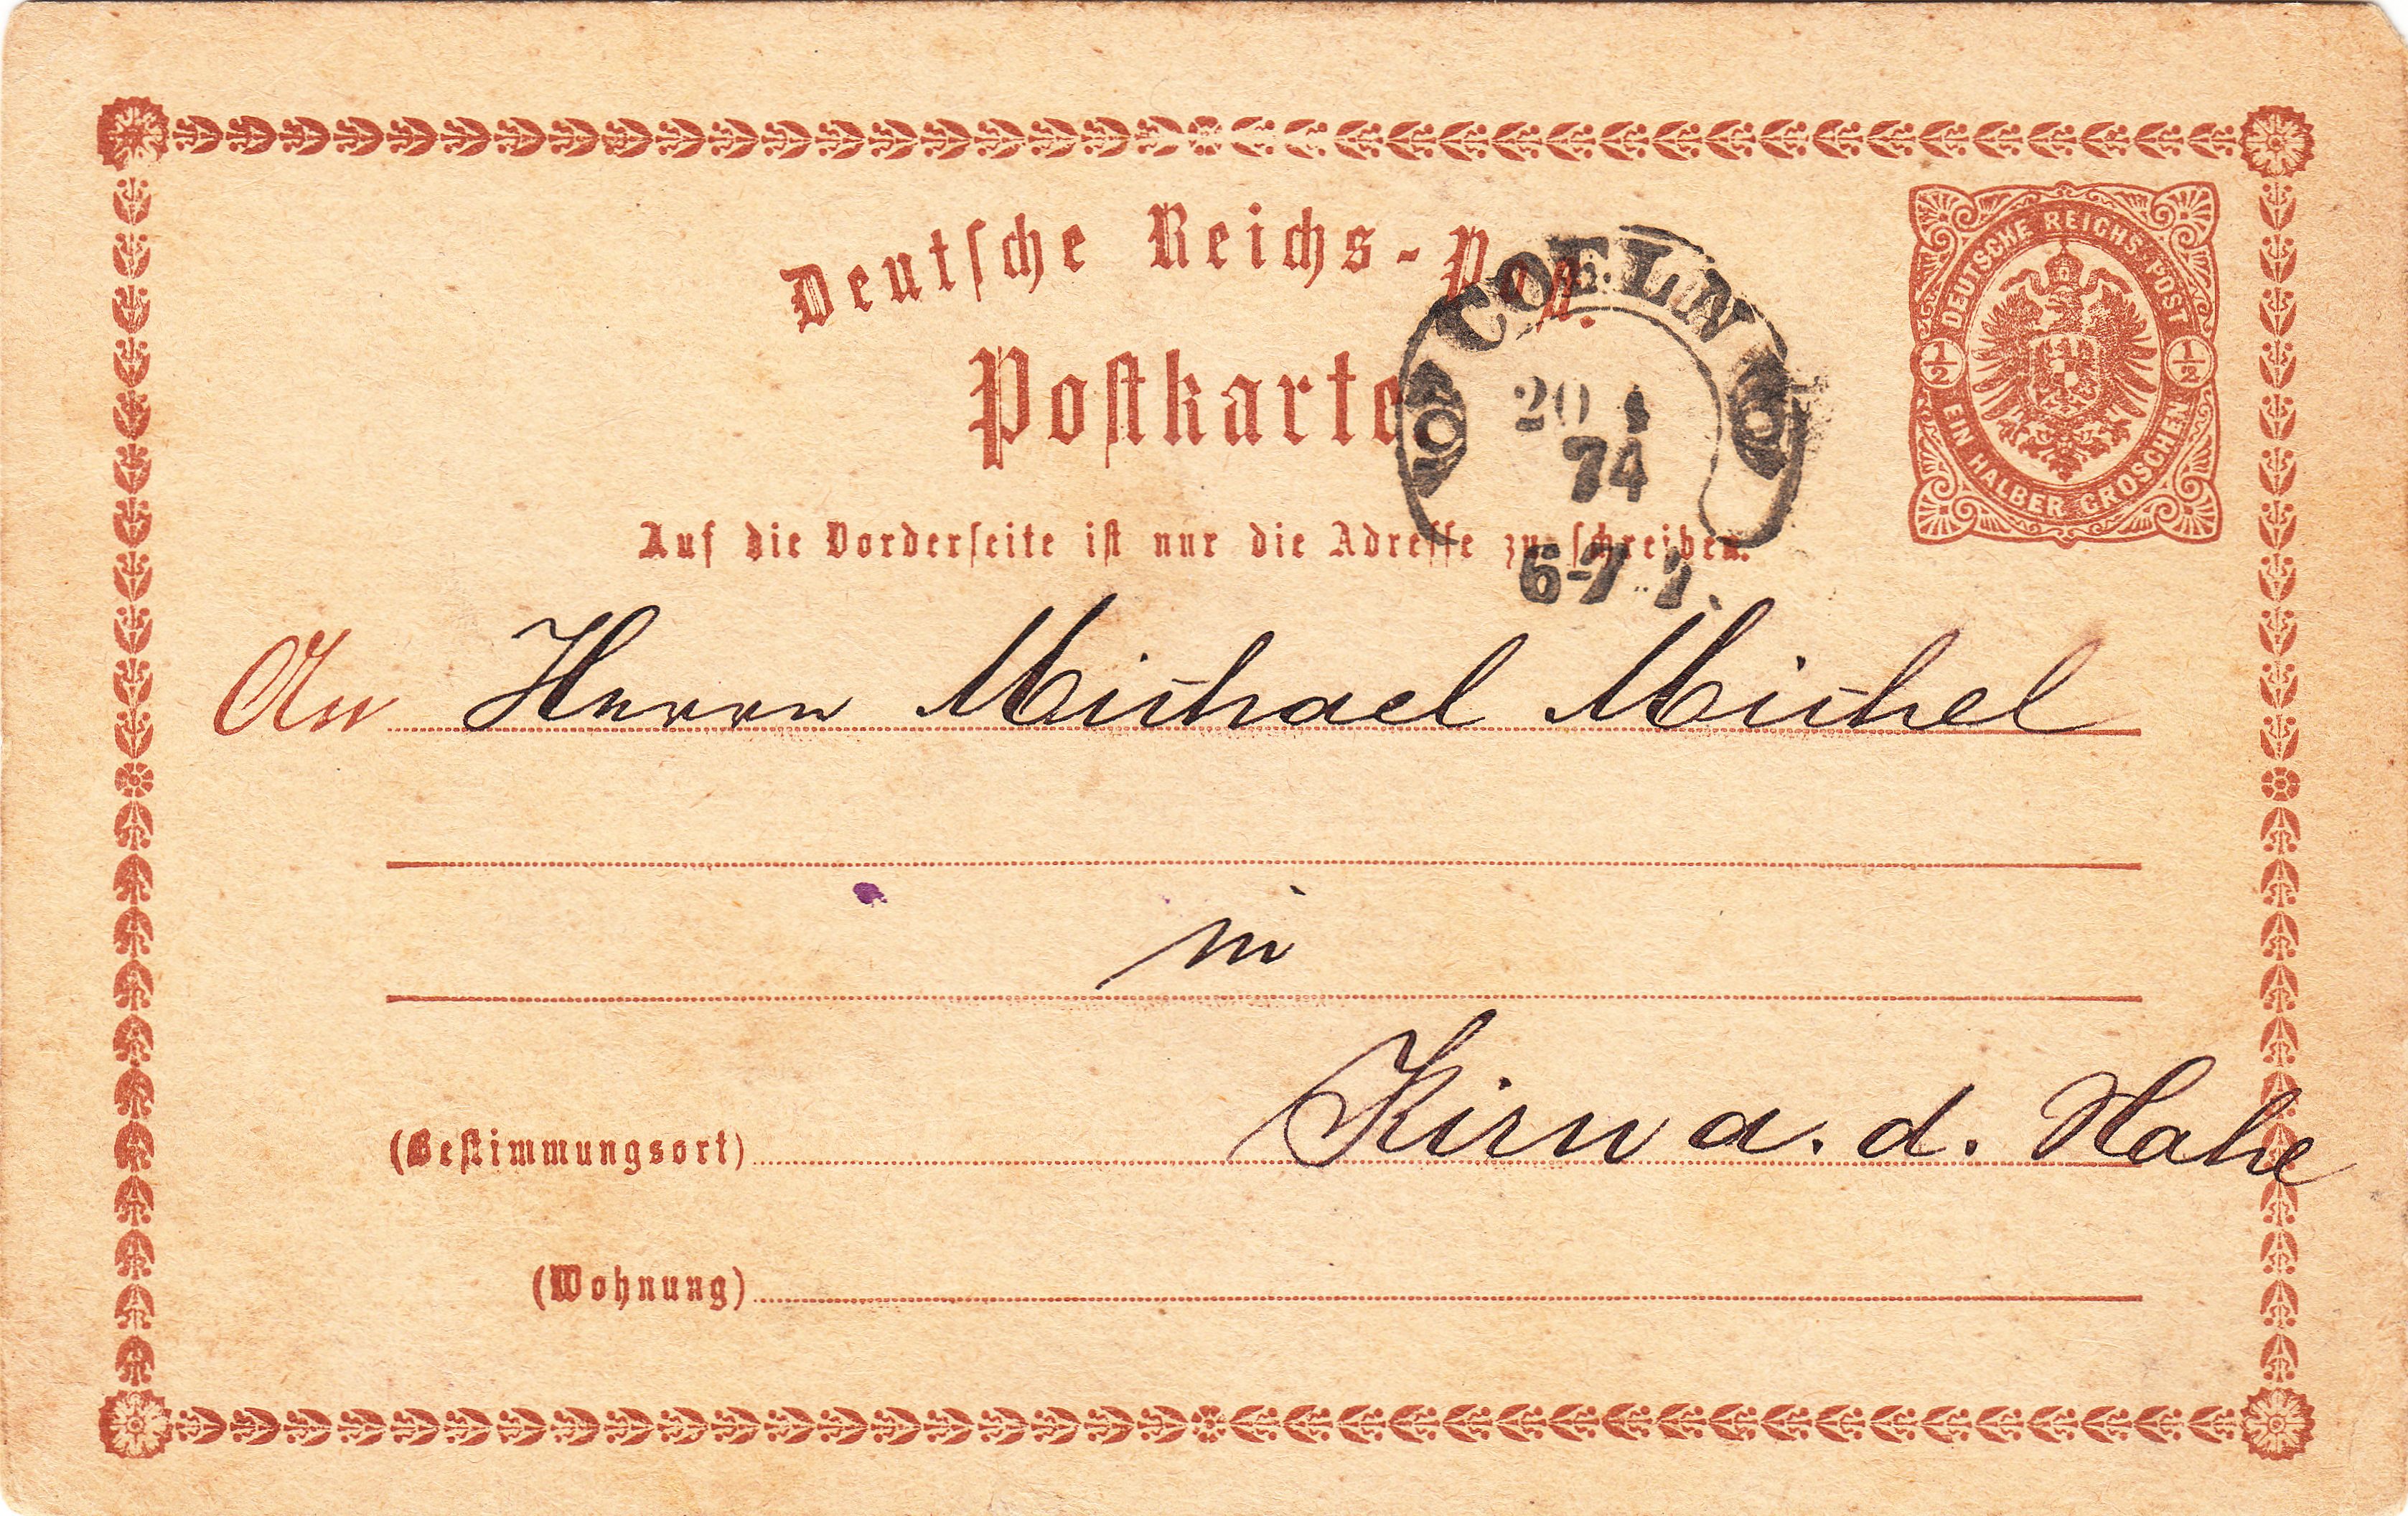 Deutsche Reichs-Post.
DEUTSCHE REICHS-POST
1/2 1/2
EIN HALBER GROSCHEN
COELN
Postkarte
20
74
Auf die Vorderseite ist nur die Adresse zu schreiben.
6-7
An Herrn Michael Michel
in
(Bestimmungsort) Kirn a. d. Nahe
(Wohnung)